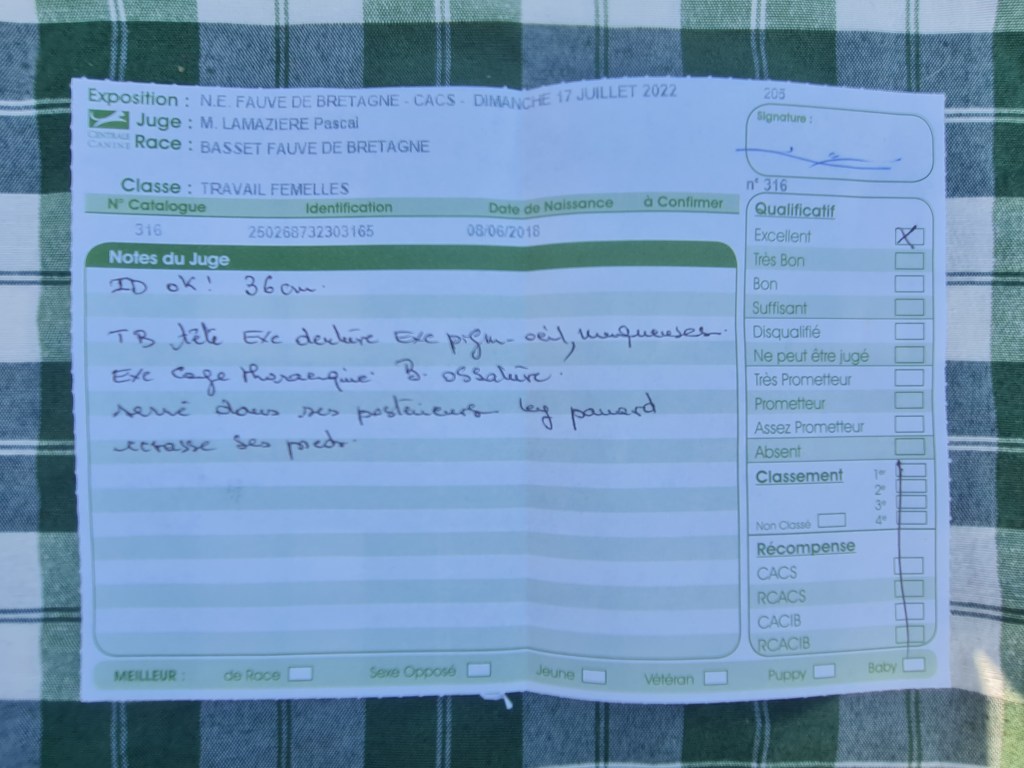 Exposition : N.E. FAUVE DE BRETAGNE - CACS - DIMANCHE 17 JUILLET 2022
206
CENTRALE CANINE
Juge : M. LAMAZIERE Pascal
Race : BASSET FAUVE DE BRETAGNE
Signature :
Classe : TRAVAIL FEMELLES
n° 316
N° Catalogue Identification Date de Naissance à Confirmer
316 250268732303165 08/06/2018
Notes du Juge
ID ok! 36 cm.
TB tête Exc denture Exc pigm. oeil, muqueuses.
Exc Cage thoracique. B. ossature.
serré dans ses postérieurs leg panard
ecrasse ses pieds.
Qualificatif
Excellent
Très Bon
Bon
Suffisant
Disqualifié
Ne peut être jugé
Très Prometteur
Prometteur
Assez Prometteur
Absent
Classement 1er
2e
3e
Non Classé 4e
Récompense
CACS
RCACS
CACIB
RCACIB
MEILLEUR : de Race Sexe Opposé Jeune Vétéran Puppy Baby